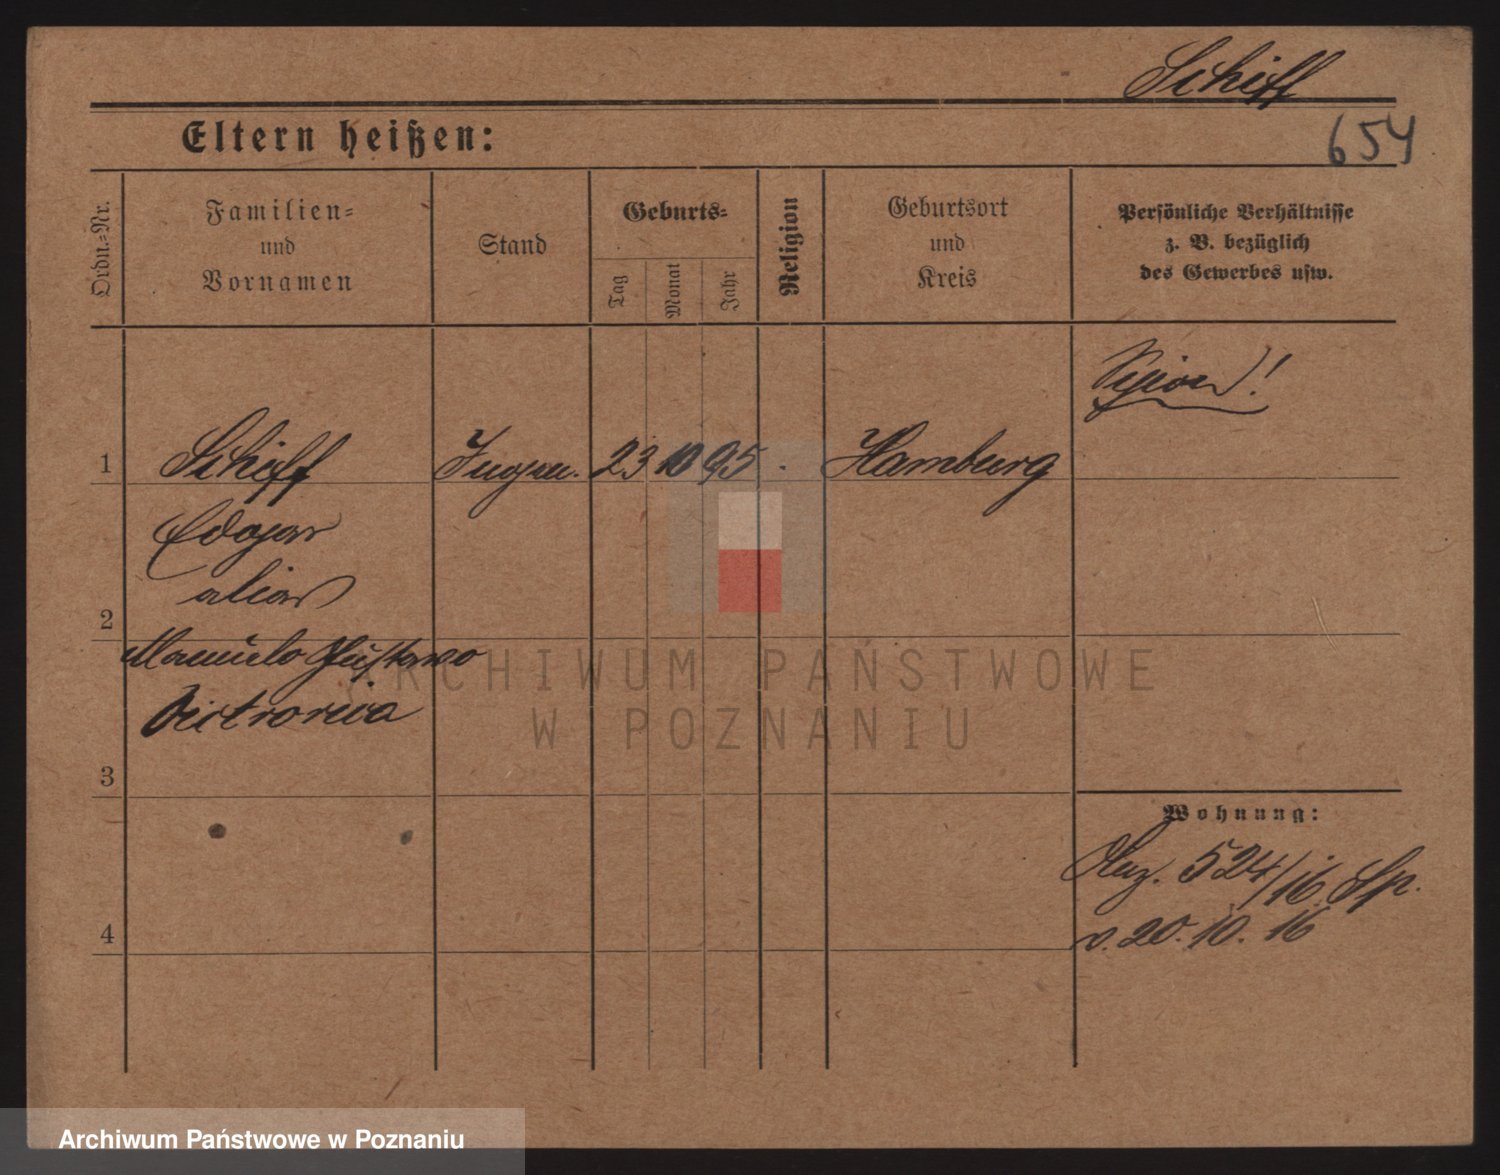 Schiff
654
Eltern heißen:
Ordn.=Nr.
Familien=
und
Vornamen
Stand
Geburts=
Tag
Monat
Jahr
Religion
Geburtsort
und
Kreis
Persönliche Verhältnisse
z. B. bezüglich
des Gewerbes usw.
Spion!
1
Schiff
Ingen.
23
10
95
Hamburg
Edgar
alias
2
Manuelo Gustavo
3
Wohnung:
524/16
v. 20. 10. 16
4
ARCHIWUM PAŃSTWOWE
W POZNANIU
Archiwum Państwowe w Poznaniu